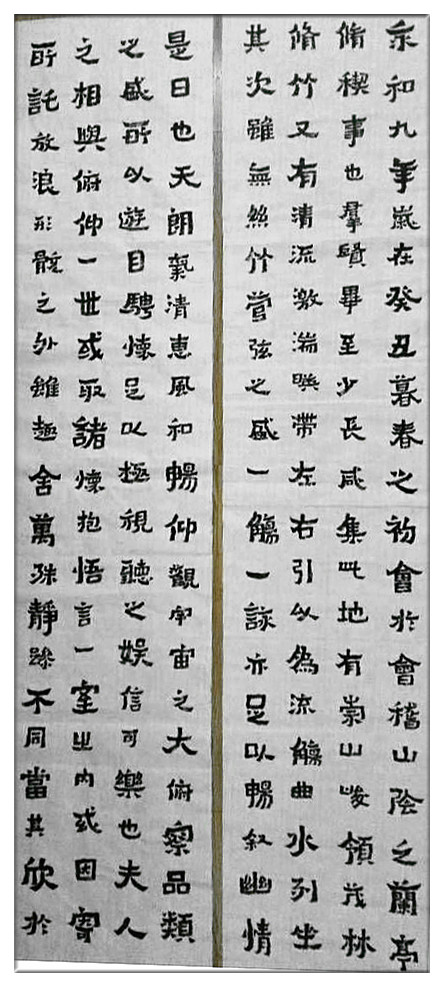 永和九年歲在癸丑暮春之初會於會稽山陰之蘭亭
脩禊事也羣賢畢至少長咸集此地有崇山峻領茂林
脩竹又有清流激湍暎帶左右引以為流觴曲水列坐
其次雖無絲竹管弦之盛一觴一詠亦足以暢叙幽情
是日也天朗氣清惠風和暢仰觀宇宙之大俯察品類
之盛所以遊目騁懷足以極視聽之娛信可樂也夫人
之相與俯仰一世或取諸懷抱悟言一室之內或因寄
所託放浪形骸之外雖趣舍萬殊靜躁不同當其欣於